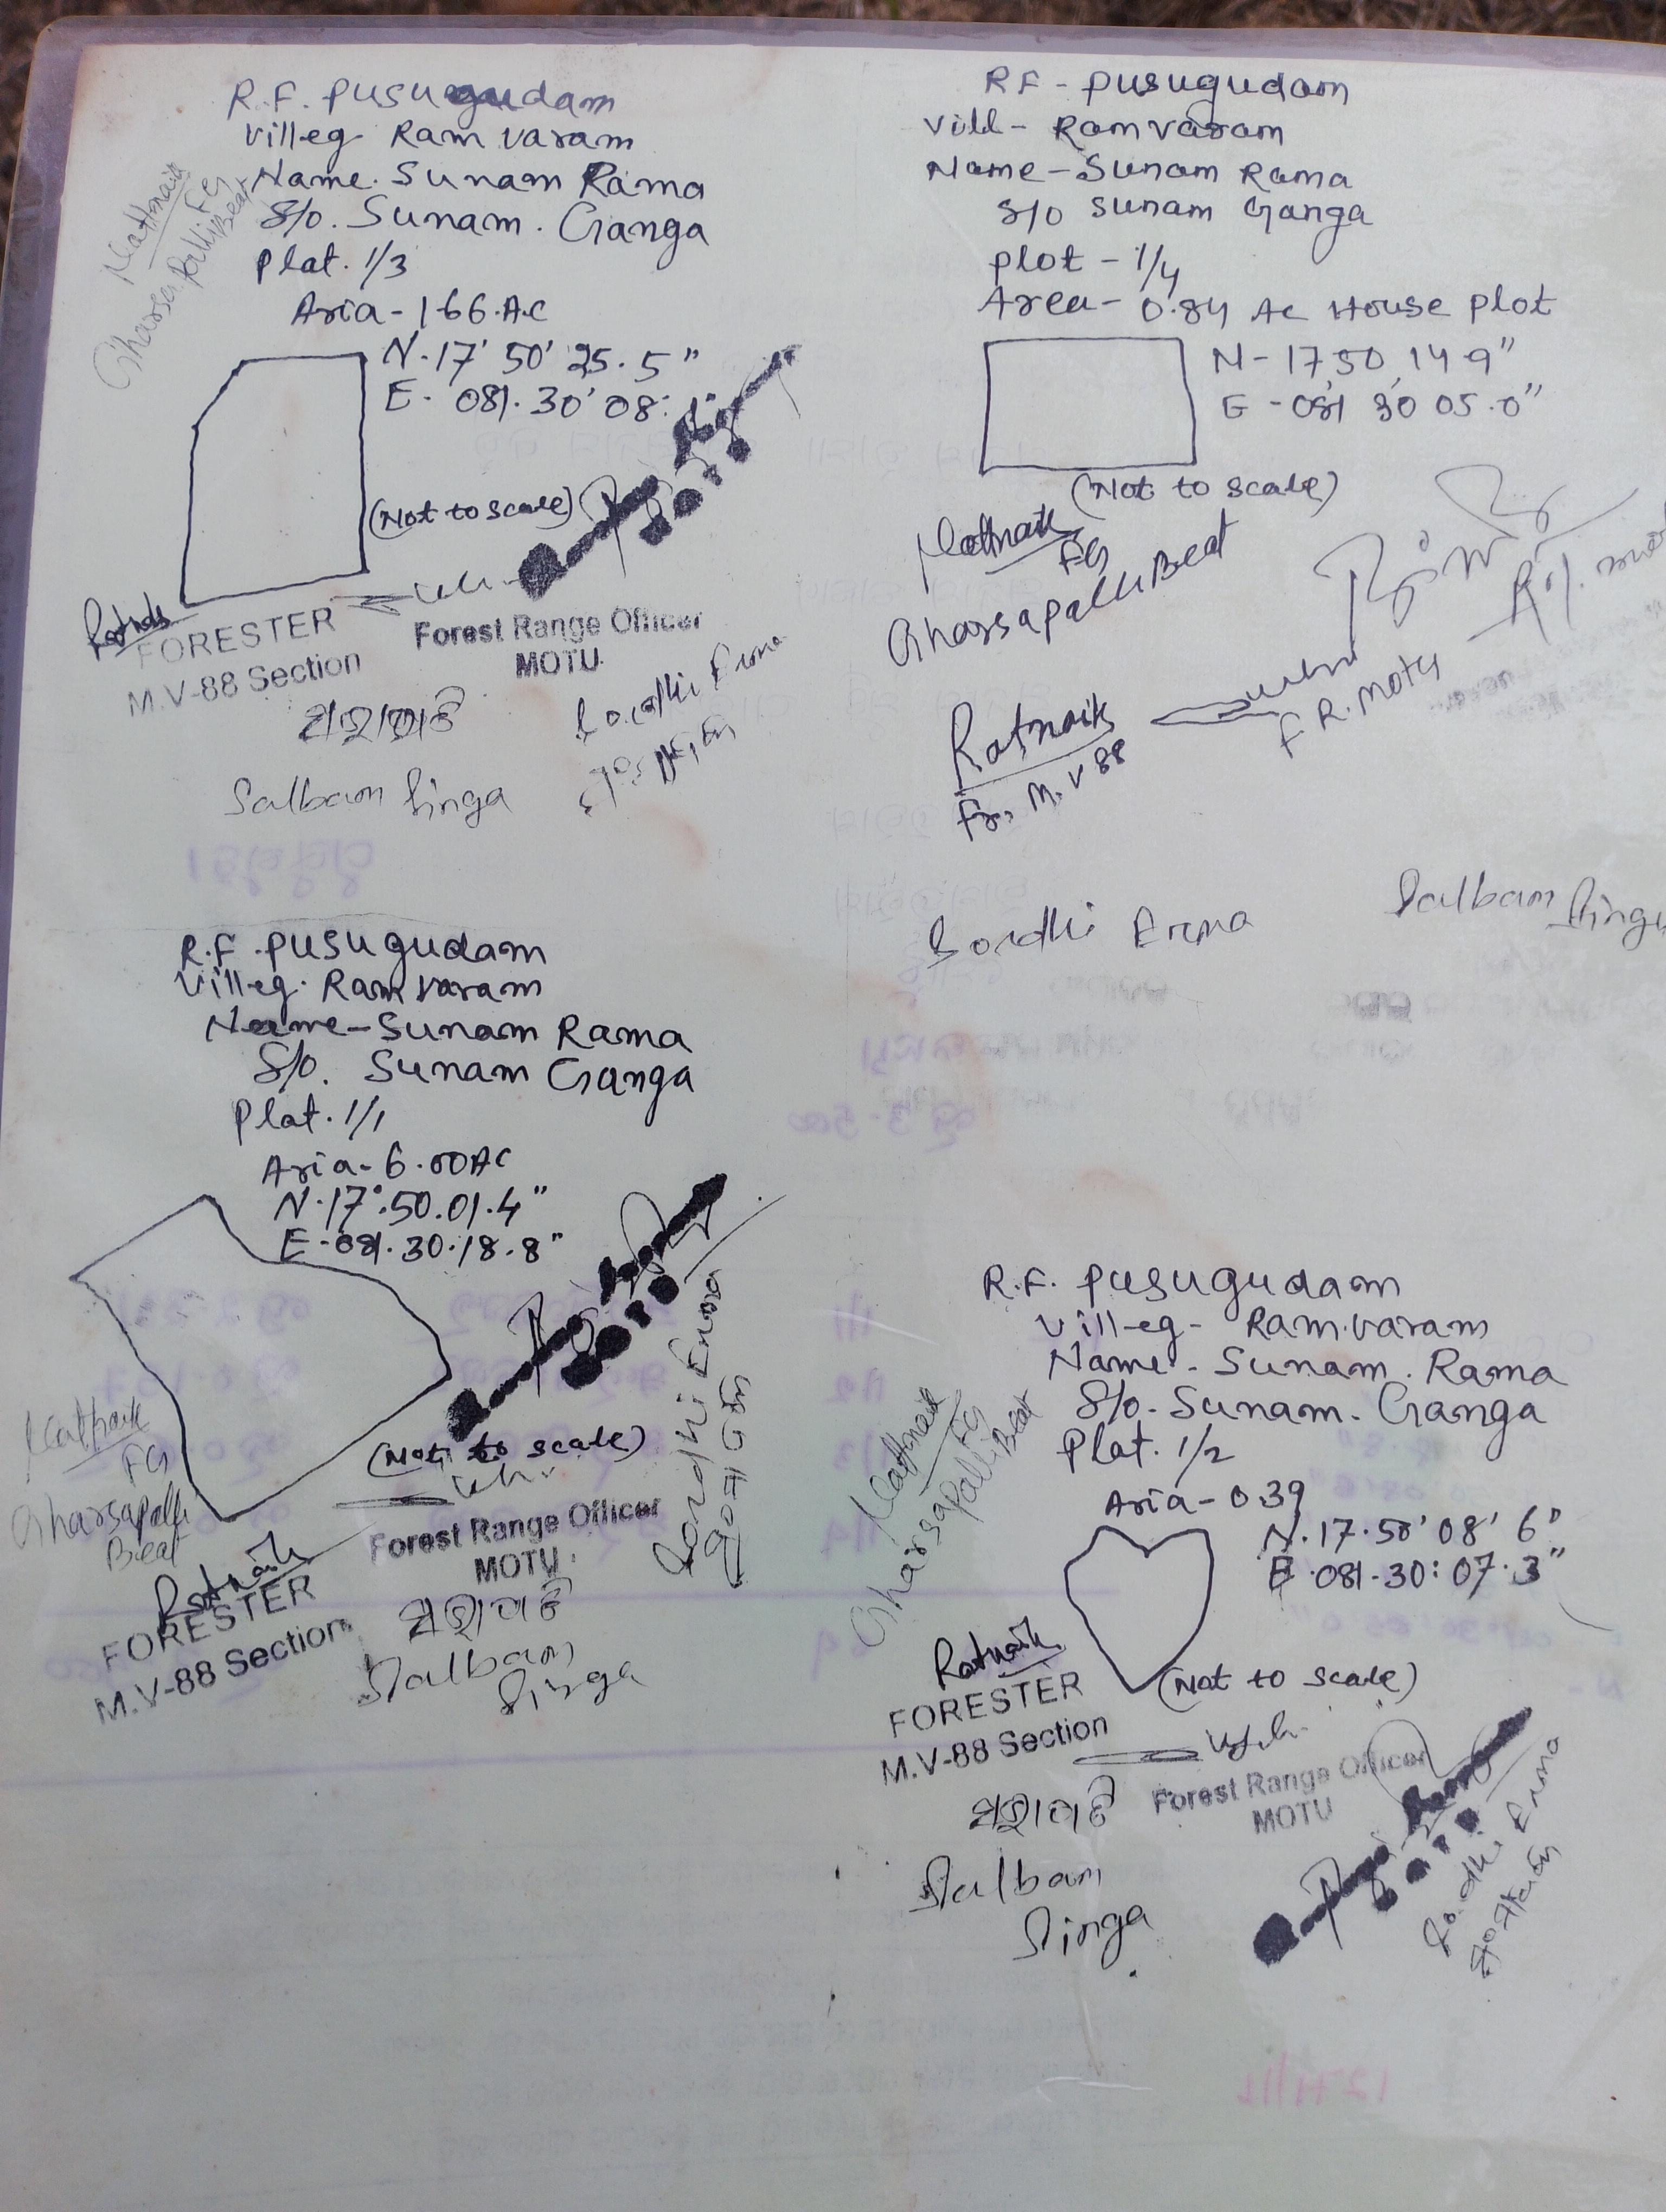 R.F. Pusugudam
Villeg Ram varam
Name. Sunam Rama
S/o. Sunam. Ganga
Plat. 1/3
Aria - 1.66.AC
N. 17' 50' 25.5"
E. 081. 30' 08:
(Not to scale)
FG
FORESTER
M.V-88 Section
Forest Range Officer
MOTU
Salbam Singa
RF - Pusugudam
Vill - Ramvaram
Name - Sunam Rama
S/o Sunam Ganga
Plot - 1/4
Area - 0.84 Ac House Plot
N - 17 50 14 9"
E - 081 30 05.0"
(Not to scale)
FG
Gharsapalli Beat
Ratnaik
Fr, M.V 88
F R. Motu
Sordhi Erma
Salbam Singa
R.F. Pusugudam
Villeg. Ramvaram
Name - Sunam Rama
S/o. Sunam Ganga
Plat. 1/1
Aria - 6.00AC
N. 17°.50.01.4"
E - 081.30.18.8"
(Not to scale)
FG
Gharsapalli
Beat
Ratnaik
FORESTER
M.V-88 Section
Forest Range Officer
MOTU
Sordhi Erma
Salbam
Singa
R.F. Pusugudam
Villeg - Ram.varam
Name - Sunam. Rama
S/o. Sunam. Ganga
Plat. 1/2
Aria - 0.39
N. 17.50' 08' 6"
E. 081.30:07.3"
(Not to scale)
FG
Gharsapalli Beat
Ratnaik
FORESTER
M.V-88 Section
Forest Range Officer
MOTU
Salbam
Singa
Sordhi Erma